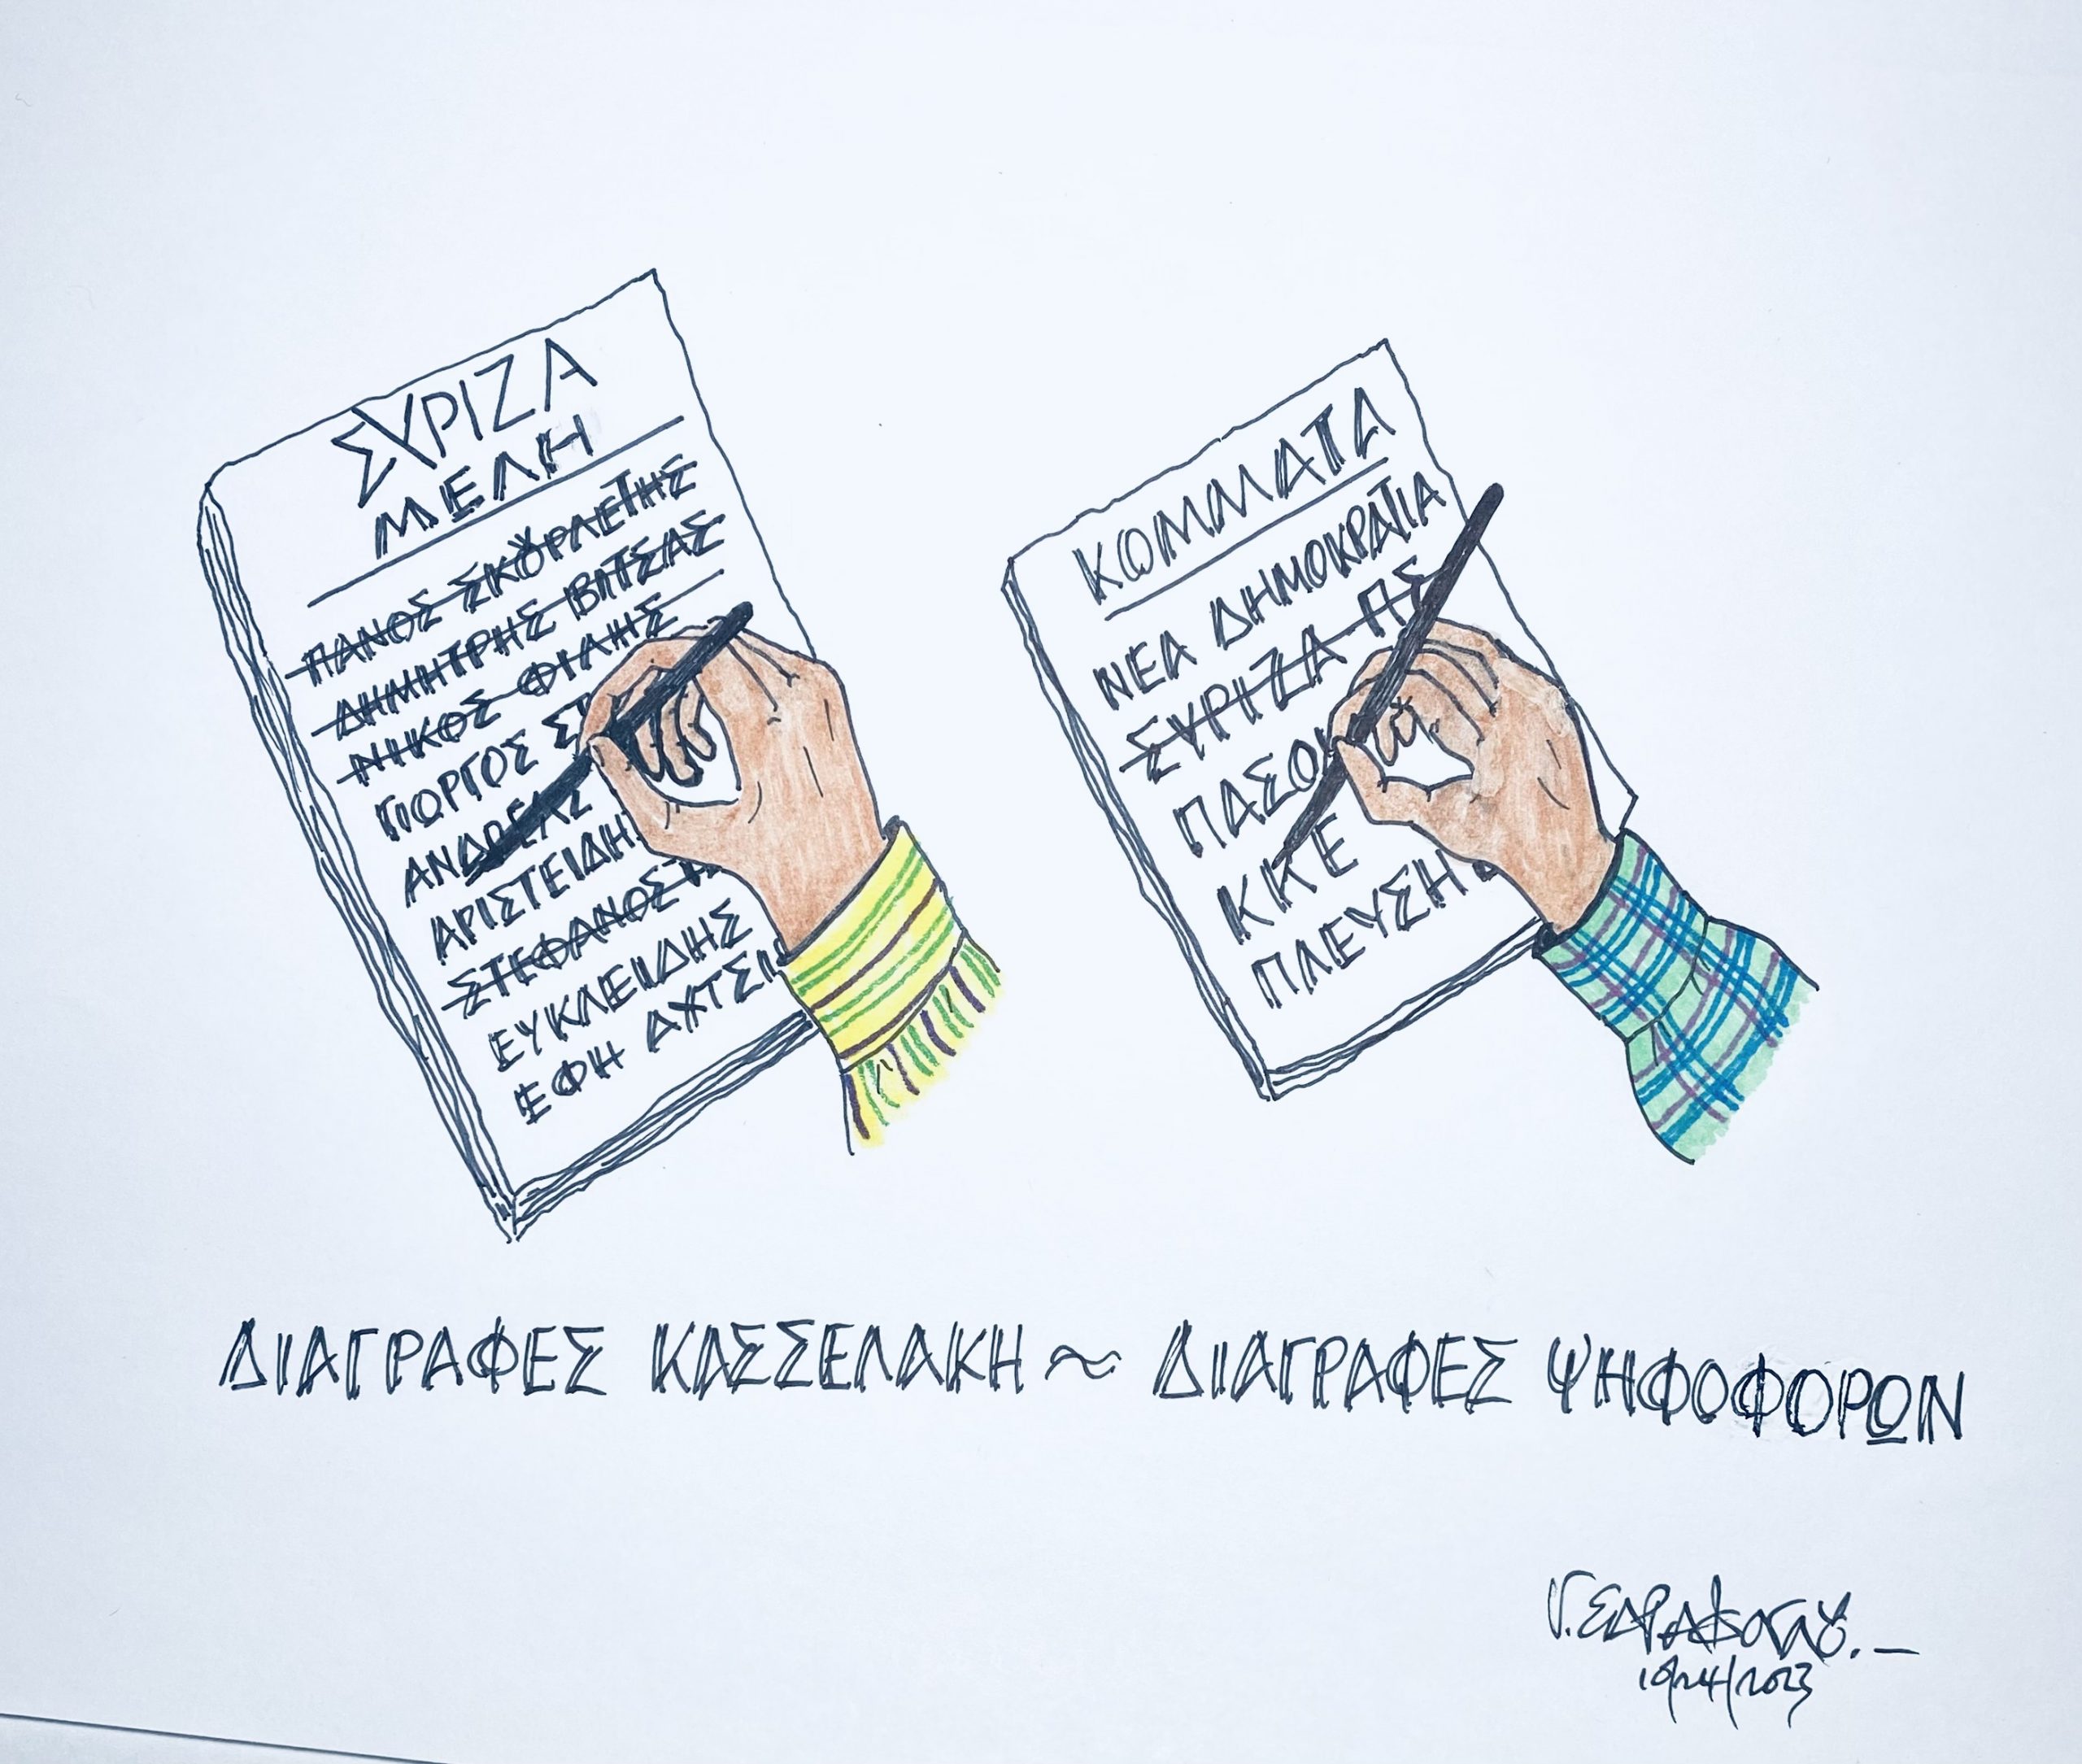 ΣΥΡΙΖΑ
ΜΕΛΗ
ΠΑΝΟΣ ΣΚΟΥΡΛΕΤΗΣ
ΔΗΜΗΤΡΗΣ ΒΙΤΣΑΣ
ΝΙΚΟΣ ΦΙΛΗΣ
ΓΙΩΡΓΟΣ
ΑΝΔΡΕΑΣ
ΑΡΙΣΤΕΙΔΗ
ΣΤΕΦΑΝΟΣ
ΕΥΚΛΕΙΔΗΣ
ΕΦΗ ΑΧΤΣΙ
ΚΟΜΜΑΤΑ
ΝΕΑ ΔΗΜΟΚΡΑΤΙΑ
ΣΥΡΙΖΑ ΠΣ
ΠΑΣΟΚ
ΚΚΕ
ΠΛΕΥΣΗ
ΔΙΑΓΡΑΦΕΣ ΚΑΣΣΕΛΑΚΗ ~ ΔΙΑΓΡΑΦΕΣ ΨΗΦΟΦΟΡΩΝ
10/24/2023